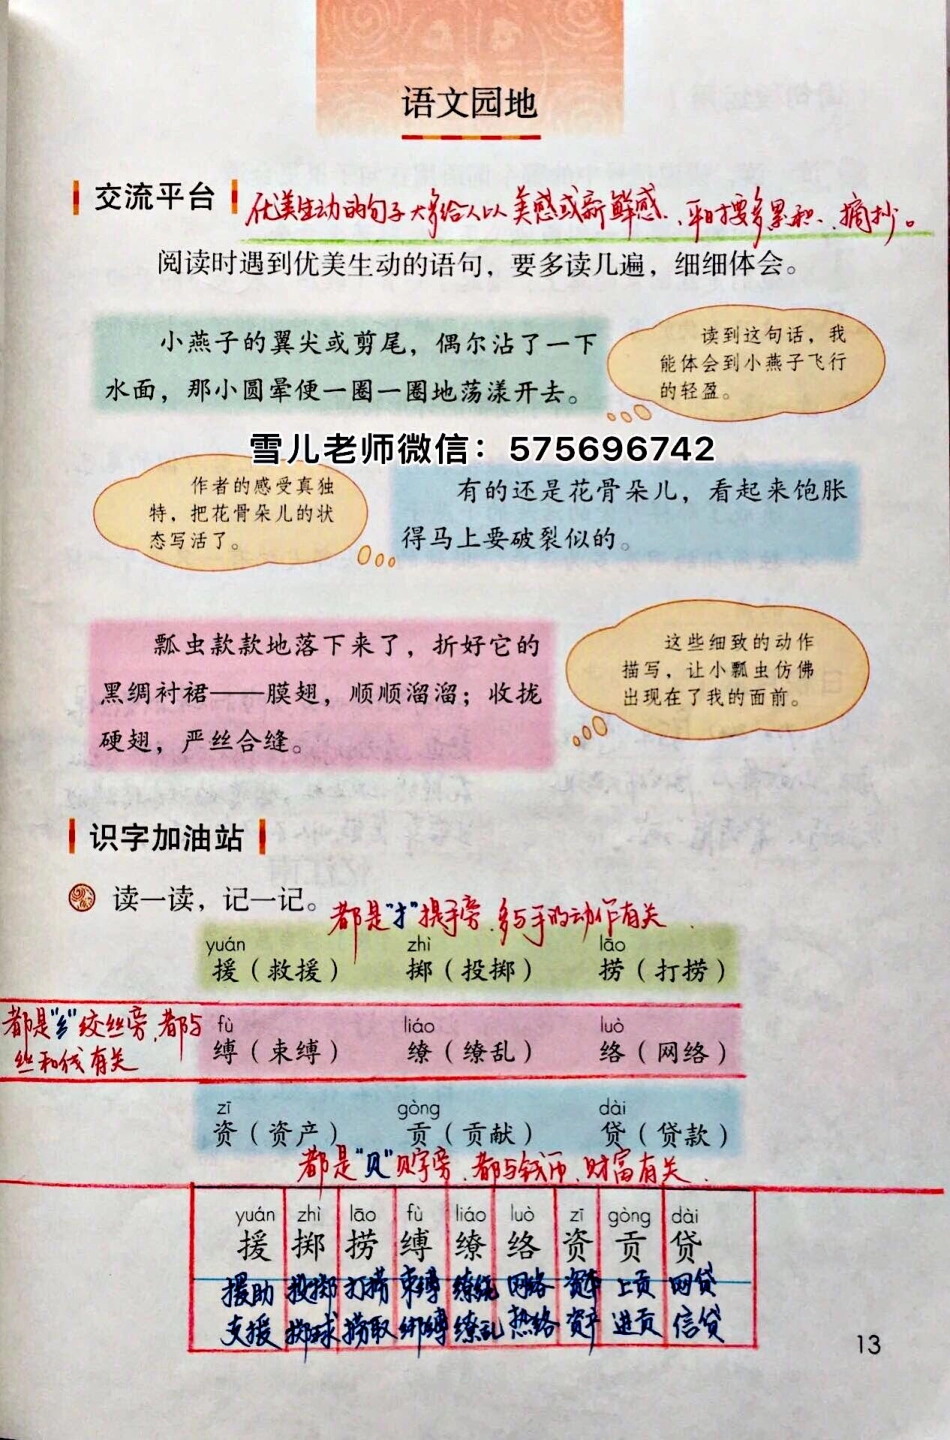 语文园地
交流平台
优美生动的句子大多给人以美感或新鲜感、平时要多累积、摘抄。
阅读时遇到优美生动的语句，要多读几遍，细细体会。
小燕子的翼尖或剪尾，偶尔沾了一下
水面，那小圆晕便一圈一圈地荡漾开去。
读到这句话，我
能体会到小燕子飞行
的轻盈。
雪儿老师微信：575696742
作者的感受真独
特，把花骨朵儿的状
态写活了。
有的还是花骨朵儿，看起来饱胀
得马上要破裂似的。
瓢虫款款地落下来了，折好它的
黑绸衬裙——膜翅，顺顺溜溜；收拢
硬翅，严丝合缝。
这些细致的动作
描写，让小瓢虫仿佛
出现在了我的面前。
识字加油站
读一读，记一记。
都是“扌”提手旁、多与手的动作有关
yuán zhì lāo
援（救援） 掷（投掷） 捞（打捞）
都是“纟”绞丝旁、都与
丝和线有关
fù liáo luò
缚（束缚） 缭（缭乱） 络（网络）
zī gòng dài
资（资产） 贡（贡献） 贷（贷款）
都是“贝”贝字旁、都与钱币、财富有关
yuán zhì lāo fù liáo luò zī gòng dài
援 掷 捞 缚 缭 络 资 贡 贷
援助 投掷 打捞 束缚 缭绕 网络 资本 上贡 网贷
支援 掷球 捞取 绑缚 缭乱 热络 资产 进贡 信贷
13